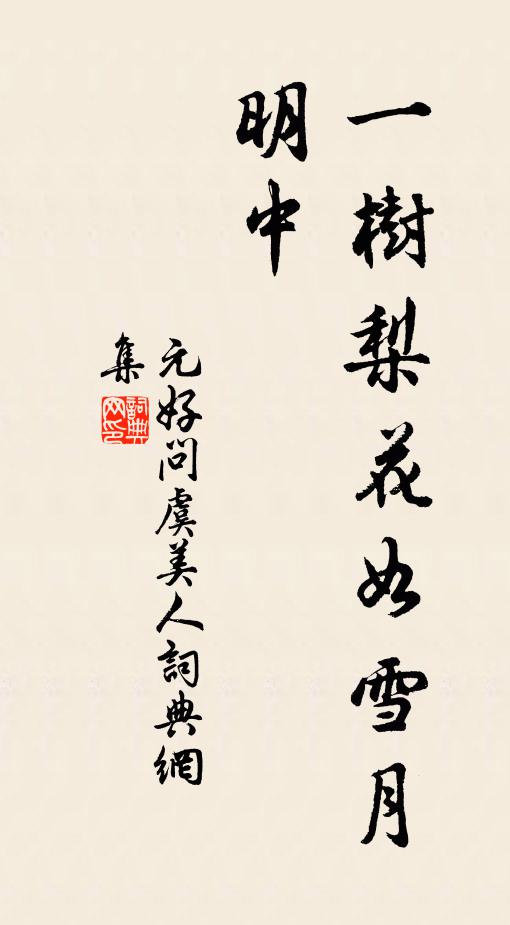 一樹梨花如雪月
明中
元好問虞美人詞典網
集
詞典
网印